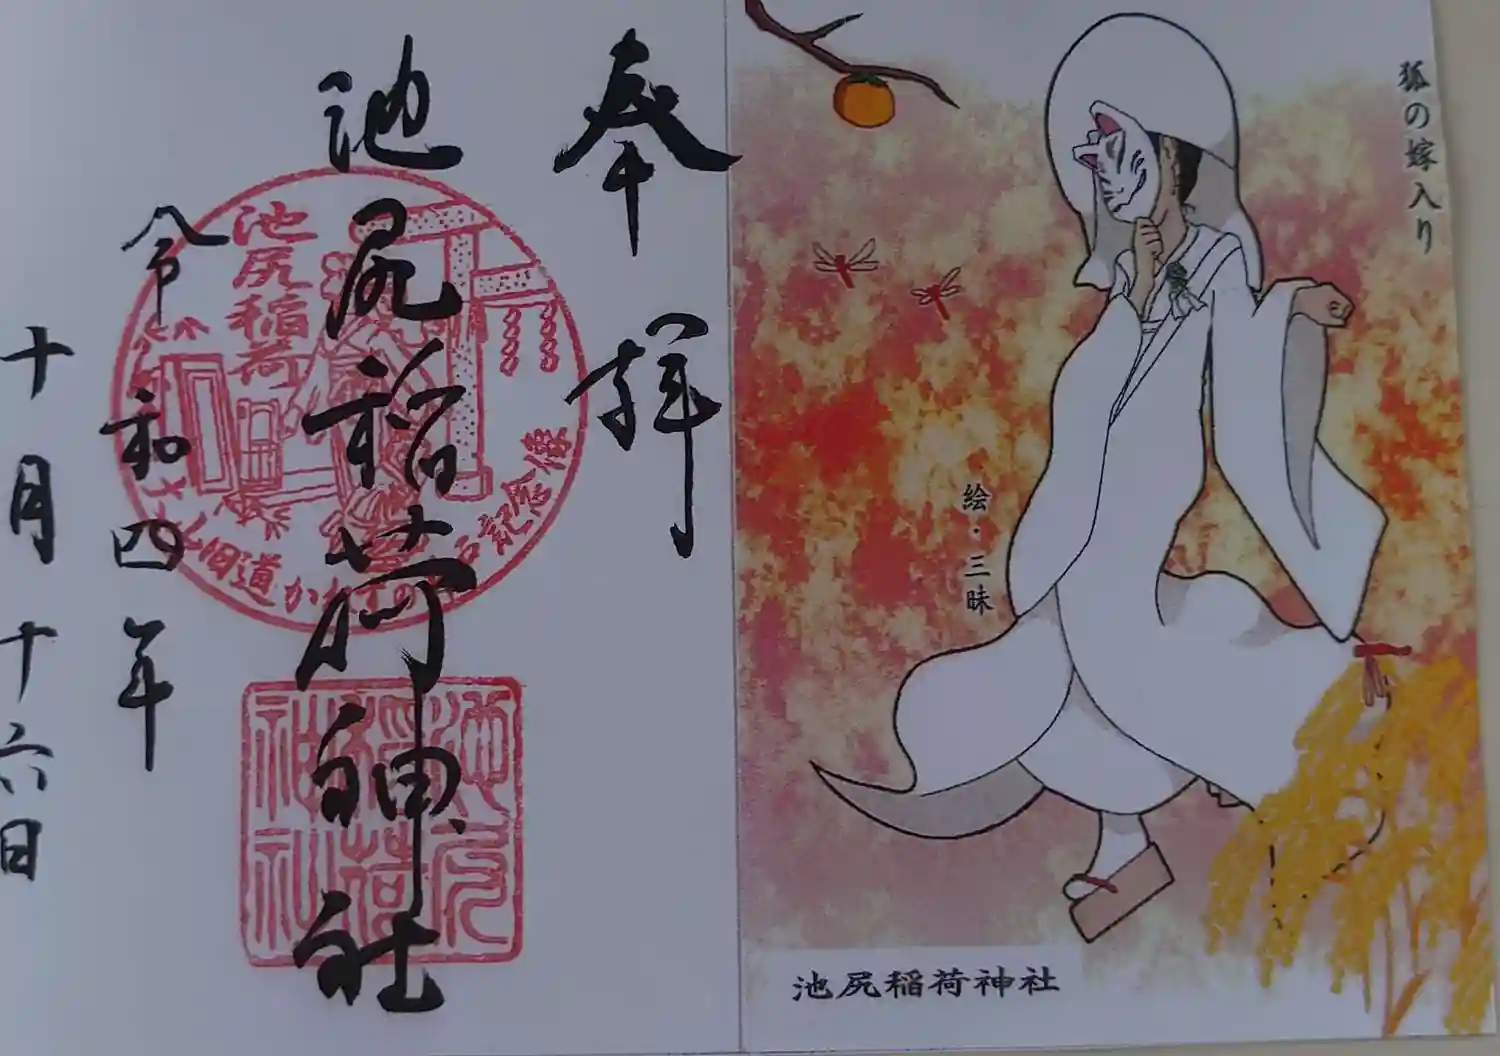 狐の嫁入り
絵・三昧
池尻稲荷神社
奉拝
池尻稲荷神社
令和四年
十月十六日
池尻稲荷
旧道
池尻稲荷神社